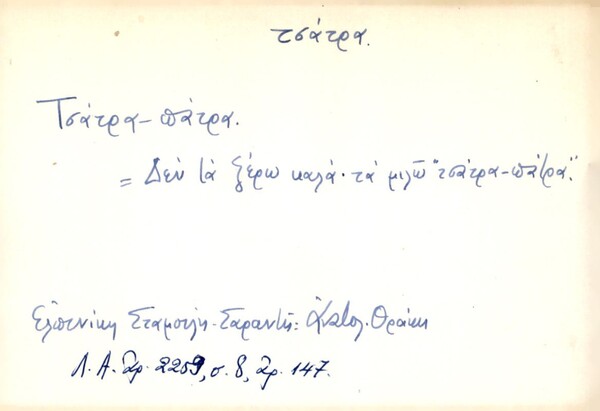 τσάτρα.
Τσάτρα-πάτρα.
= Δεν τά ξέρω καλά· τά μιλῶ "τσάτρα-πάτρα".
Ελπινίκη Σταμούλη-Σαραντῆ: Ἀνατολ. Θράκη
Λ.Α. ἀρ. 2259, σ. 8, ἀρ. 147.